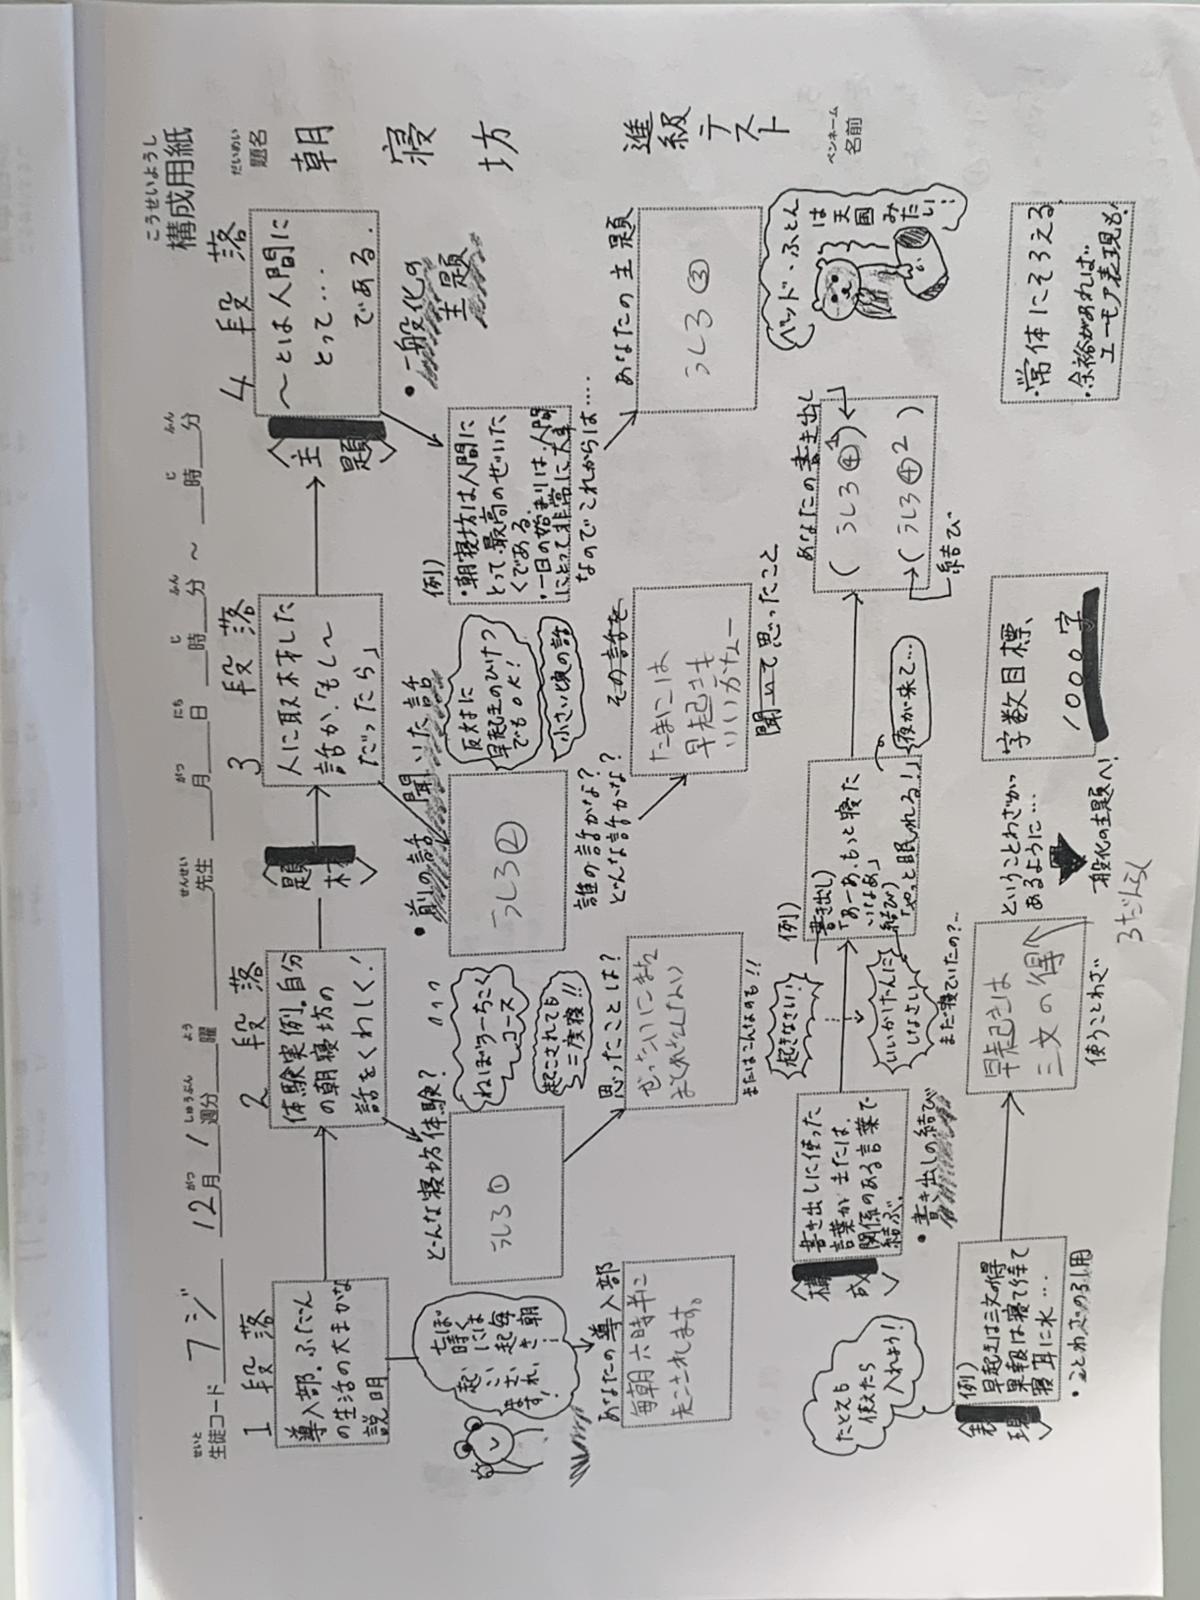 こうせいようし
構成用紙
だいめい
題名
朝
寝
坊
進級テスト
ペンネーム
名前
せいと
生徒コード フジ 12月 1週分 曜 先生 月 日 時 分 ～ 時 分
1段落
導入部。ふだん
の生活の大まかな
説明
ぼくは毎朝
七時に起き
起こされ
ます!
あなたの導入部
毎朝六時半に
起こされます。
2段落
体験実例。自分
の朝寝坊の
話をくわしく!
どんな寝坊体験?
うしろ①
ねぼうーちこく
コース
起こされても
三度寝!!
思ったことは?
ぜったいにまた
〈題材〉
3段落
人に取材した
話か、「もし～
だったら」
・前の話 聞いた話
うしろ②
反対に
早起きのひけつ
でもOK!
小さい頃の話
誰の話かな?
どんな話かな?
その話を
聞いて思ったこと
「たまには
早起きも
いいかなー
〈主題〉
4段落
～とは人間に
とって…
である。
・一般化の
主題
例)
・朝寝坊は人間に
とって最高のぜいた
くである。
・一日の始まりは、人間
にとって非常に大事
なのでこれからは…
あなたの主題
うしろ③
ベッド・ふとん
は天国
みたい!
〈構成〉
書き出しに使った
言葉か または、
関係のある言葉で
結ぶ。
・書き出しの結び
またはこんなのも!!
起きなさい!
いいかげんに
しなさい
まだ寝ていたの?…
例)
書き出し)
「あーあ、もっと寝た
いなあ」
結び)
「やっと眠れる!」
夜が来て…
あなたの書き出し
(うしろ④)
(うしろ④2)
結び
〈表現〉
たとえも
使えたら
入れよう!
例)
早起きは三文の得
果報は寝て待て
寝耳に水…
・ことわざの引用
早起きは
三文の得
使うことわざ
ということわざが
あるように…
一般化の主題へ!
3だんらく
字数目標、
1000字
・常体にそろえる
・余裕があれば
ユーモア表現も!